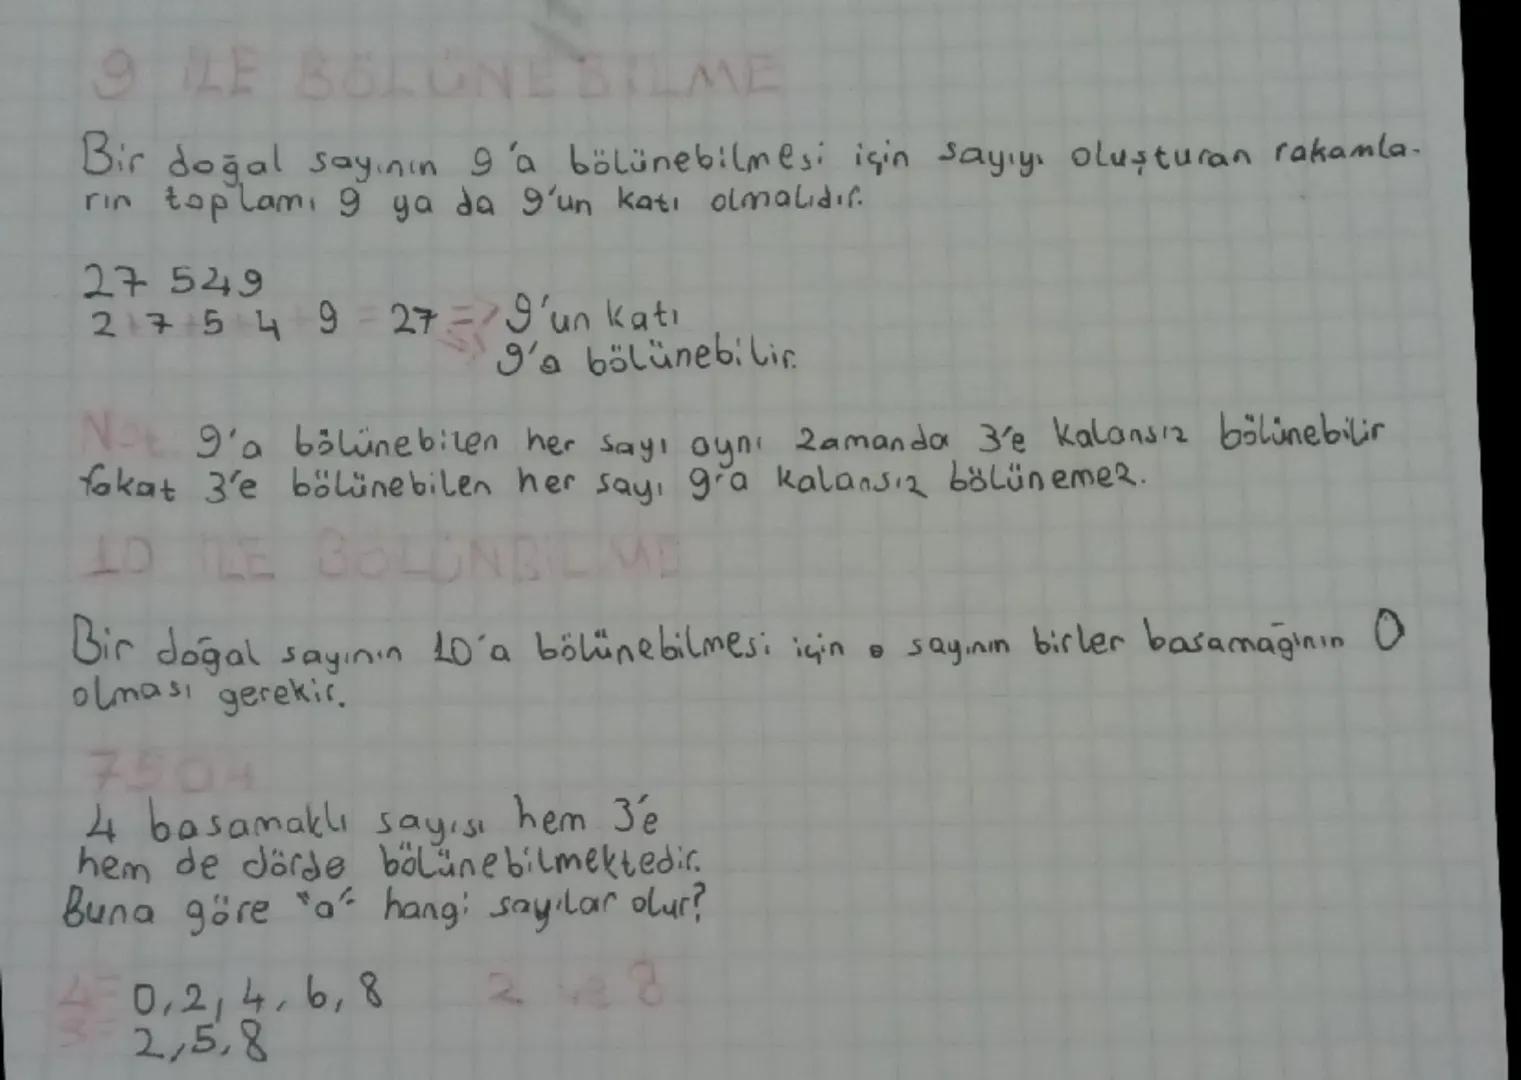 9 İLE BÖLÜNEBİLME
Bir doğal sayının 9'a bölünebilmesi için sayıyı oluşturan rakamla-
rın toplamı 9 ya da 9'un katı olmalıdır.
27 549
2+7+5+4+9=27 => 9'un katı
9'a bölünebilir.
Not 9'a bölünebilen her sayı aynı zamanda 3'e kalansız bölünebilir
fakat 3'e bölünebilen her sayı 9'a kalansız bölünemez.
10 İLE BÖLÜNBİLME
Bir doğal sayının 10'a bölünebilmesi için o sayının birler basamağının 0
olması gerekir.
4 basamaklı sayısı hem 3'e
hem de dörde bölünebilmektedir.
Buna göre "a" hangi sayılar olur?
4= 0,2,4,6,8 2 ve 8
3= 2,5,8